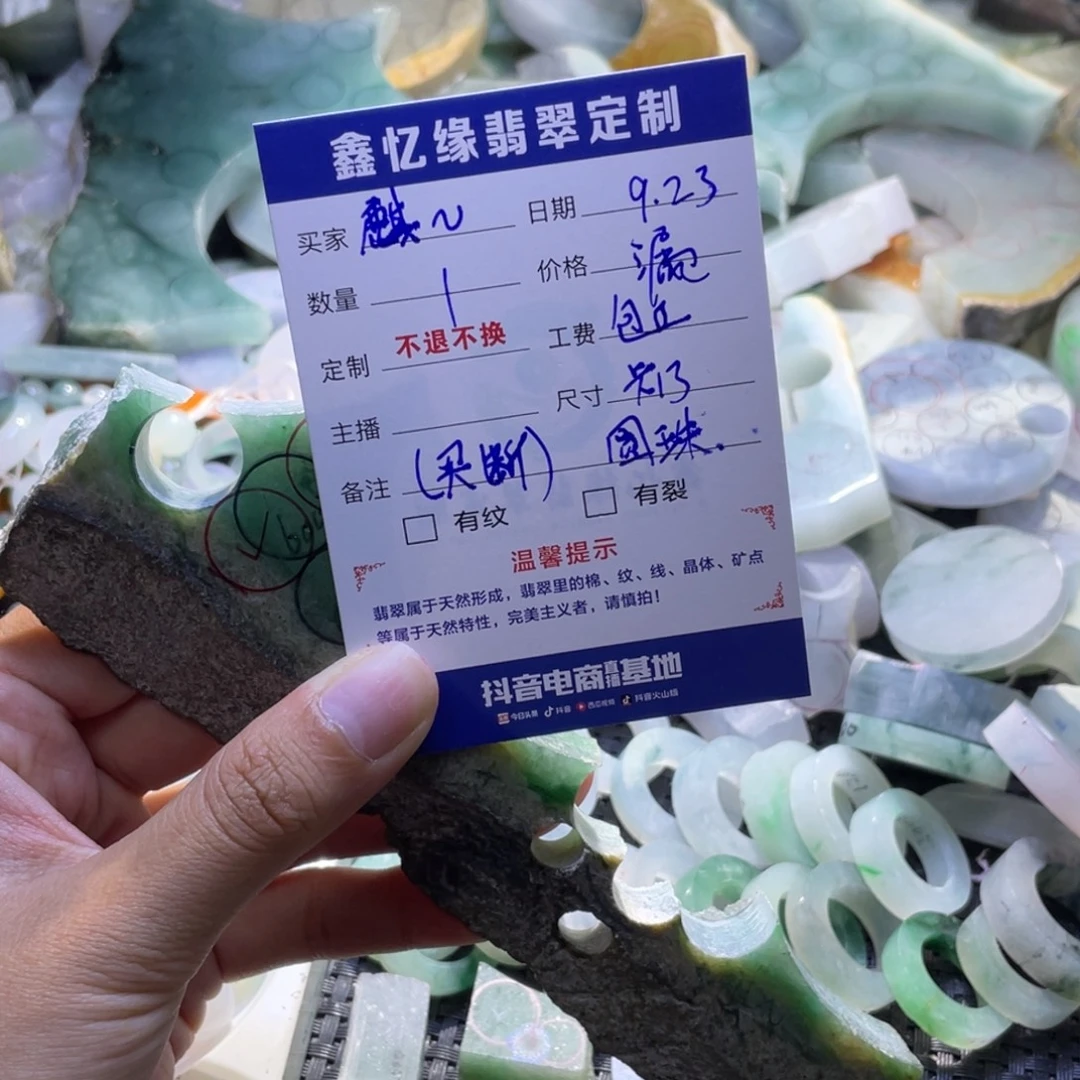 鑫忆缘翡翠定制
买家 麒~ 日期 9.23
数量 1 价格
定制 不退不换 工费 包工
主播 尺寸 卡13
备注 (买断) 圆珠.
有纹 有裂
温馨提示
翡翠属于天然形成，翡翠里的棉、纹、线、晶体、矿点
等属于天然特性，完美主义者，请慎拍！
抖音电商直播基地
今日头条 抖音 西瓜视频 抖音火山版